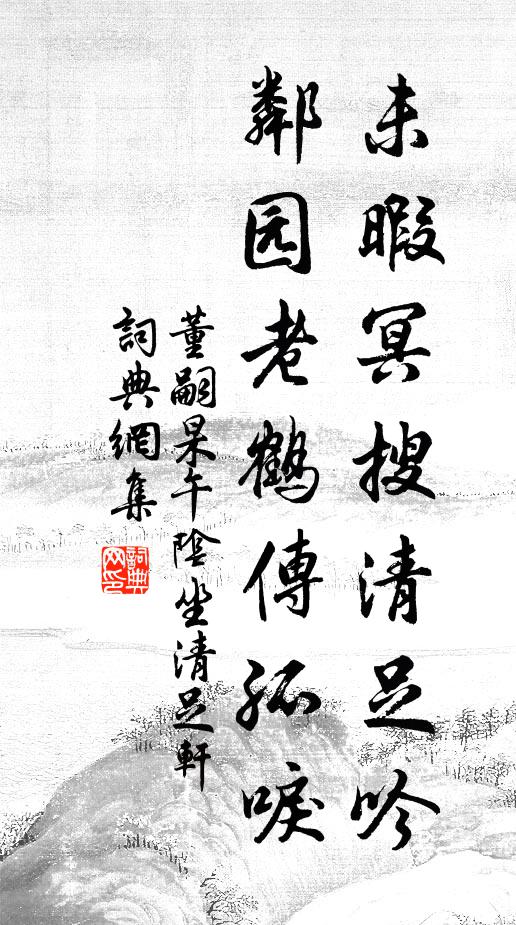 未暇冥搜清足吟
鄰园老鶴傳孤唳
董嗣杲午陰坐清足軒
詞典網集
詞典网印